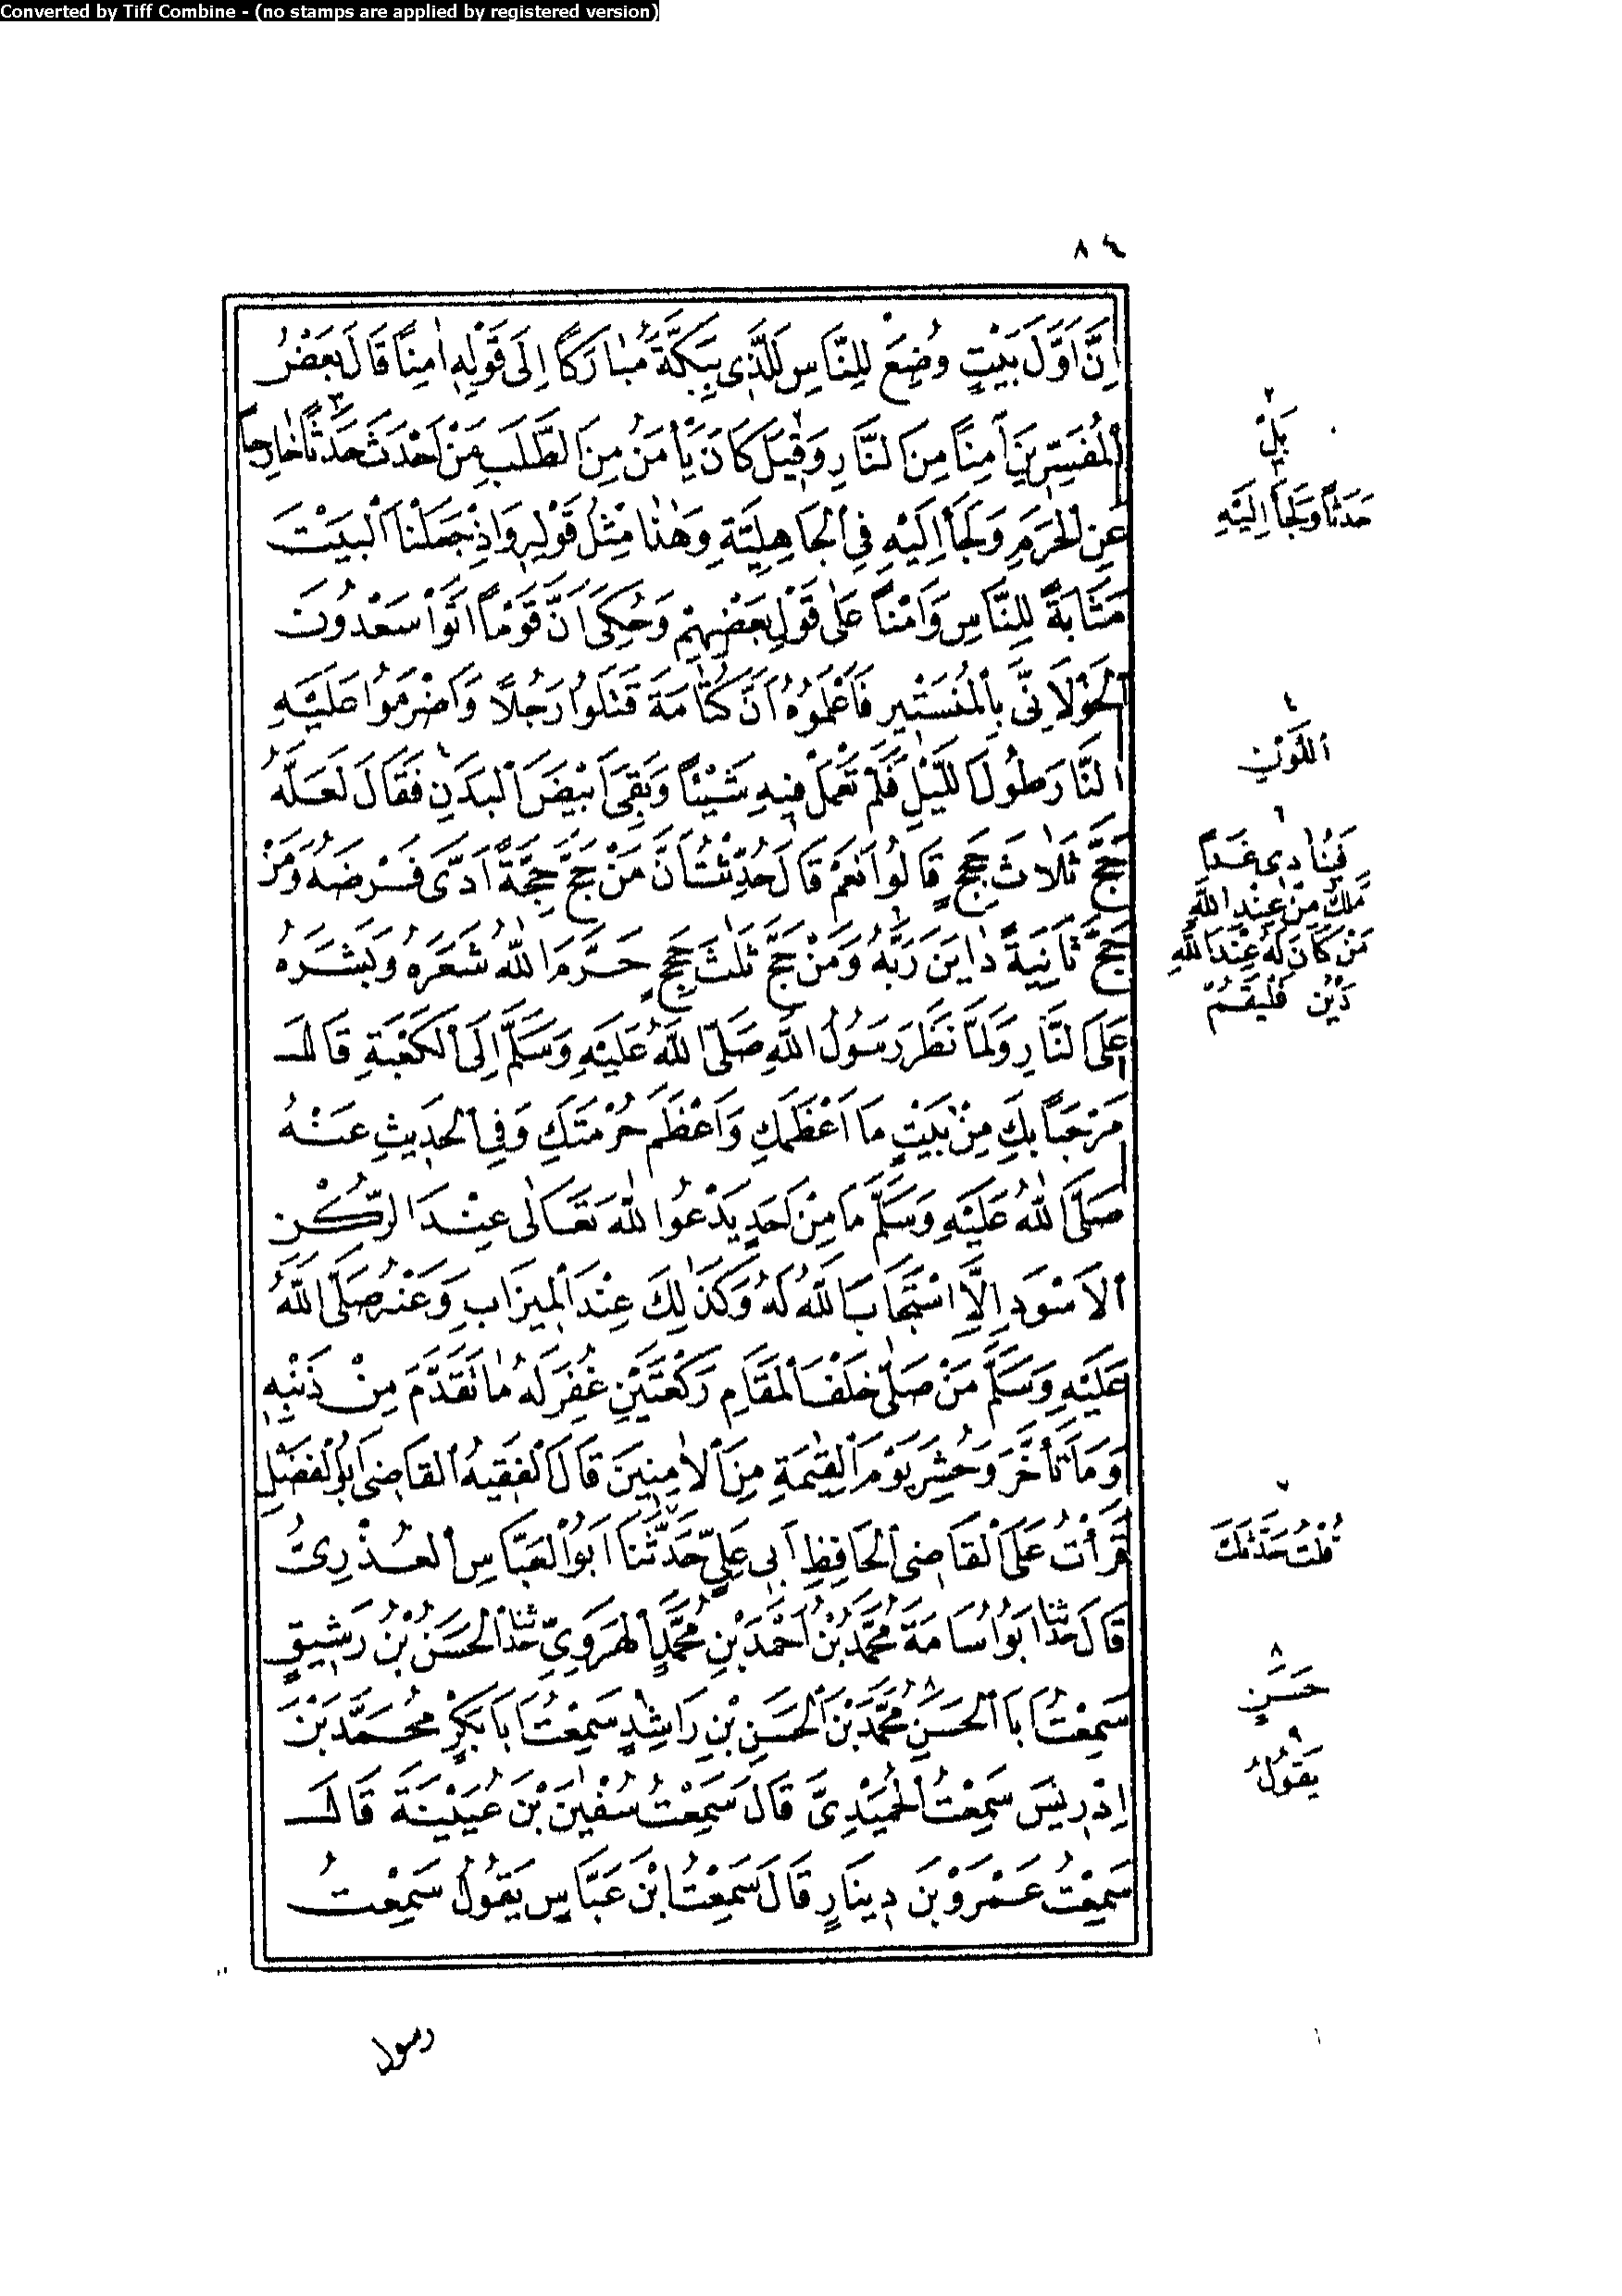 Converted by Tiff Combine - (no stamps are applied by registered version)
٨٤
اِنَّ اَوَّلَ بَيْتٍ وُضِعَ لِلنَّاسِ لَلَّذِى بِبَكَّةَ مُبَارَكًا اِلَى قَوْلِهِ اٰمِنًا قَالَ بَعْضُ
اَلْمُفَسِّرِينَ اٰمِنًا مِنَ النَّارِ وَقِيلَ كَانَ يَأْمَنُ مِنَ الطَّلَبِ مَنْ اَحْدَثَ حَدَثًا خَارِجًا
عَنِ الْحَرَمِ وَلَجَأَ اِلَيْهِ فِى الْجَاهِلِيَّةِ وَهٰذَا مِثْلُ قَوْلِهِ وَاِذْ جَعَلْنَا الْبَيْتَ
مَثَابَةً لِلنَّاسِ وَاَمْنًا عَلٰى قَوْلِ بَعْضِهِمْ وَحُكِىَ اَنَّ قَوْمًا اَتَوْا سَعْدُونَ
اَلْخَوْلَانِىَّ بِالْمُنَسْتِيرِ فَاَعْلَمُوهُ اَنَّ كُتَامَةَ قَتَلُوا رَجُلًا وَاَضْرَمُوا عَلَيْهِ
اَلنَّارَ طُولَ اللَّيْلِ فَلَمْ تَعْمَلْ فِيهِ شَيْئًا وَبَقِىَ اَبْيَضَ الْبَدَنِ فَقَالَ لَعَلَّهُ
حَجَّ ثَلَاثَ حِجَجٍ قَالُوا نَعَمْ قَالَ حُدِّثْتُ اَنَّ مَنْ حَجَّ حِجَّةً اَدَّى فَرْضَهُ وَمَنْ
حَجَّ ثَانِيَةً دَايَنَ رَبَّهُ وَمَنْ حَجَّ ثَلٰثَ حِجَجٍ حَرَّمَ اللّٰهُ شَعَرَهُ وَبَشَرَهُ
عَلَى النَّارِ وَلَمَّا نَظَرَ رَسُولُ اللّٰهِ صَلَّى اللّٰهُ عَلَيْهِ وَسَلَّمَ اِلَى الْكَعْبَةِ قَالَ
مَرْحَبًا بِكِ مِنْ بَيْتٍ مَا اَعْظَمَكِ وَاَعْظَمَ حُرْمَتَكِ وَفِى الْحَدِيثِ عَنْهُ
صَلَّى اللّٰهُ عَلَيْهِ وَسَلَّمَ مَا مِنْ اَحَدٍ يَدْعُو اللّٰهَ تَعَالٰى عِنْدَ الرُّكْنِ
اَلْاَسْوَدِ اِلَّا اسْتَجَابَ اللّٰهُ لَهُ وَكَذٰلِكَ عِنْدَ الْمِيزَابِ وَعَنْهُ صَلَّى اللّٰهُ
عَلَيْهِ وَسَلَّمَ مَنْ صَلَّى خَلْفَ الْمَقَامِ رَكْعَتَيْنِ غُفِرَ لَهُ مَا تَقَدَّمَ مِنْ ذَنْبِهِ
وَمَا تَأَخَّرَ وَحُشِرَ يَوْمَ الْقِيٰمَةِ مِنَ الْاٰمِنِينَ قَالَ الْفَقِيهُ الْقَاضِى اَبُو الْفَضْلِ
قَرَأْتُ عَلَى الْقَاضِى الْحَافِظِ اَبِى عَلِىٍّ حَدَّثَنَا اَبُو الْعَبَّاسِ الْعُذْرِىُّ
قَالَ حَدَّثَنَا اَبُو اُسَامَةَ مُحَمَّدُ بْنُ اَحْمَدَ بْنِ مُحَمَّدٍ الْهَرَوِىِّ حَدَّثَنَا الْحَسَنُ بْنُ رَشِيقٍ
سَمِعْتُ اَبَا الْحَسَنِ مُحَمَّدَ بْنَ الْحَسَنِ بْنِ رَاشِدٍ سَمِعْتُ اَبَا بَكْرٍ مُحَمَّدَ بْنَ
اِدْرِيسَ سَمِعْتُ الْحُمَيْدِىَّ قَالَ سَمِعْتُ سُفْيٰنَ بْنَ عُيَيْنَةَ قَالَ
سَمِعْتُ عَمْرَو بْنَ دِينَارٍ قَالَ سَمِعْتُ ابْنَ عَبَّاسٍ يَقُولُ سَمِعْتُ
رسول
٢
بَلْ
٣
حَدَثًا وَلَجَأَ اِلَيْهِ
٤
اَللَّوْنِ
٦
فَيُنَادِى غَدًا
مَلَكٌ مِنْ عِنْدِ اللّٰهِ
مَنْ كَانَ لَهُ عِنْدَ اللّٰهِ
دَيْنٌ فَلْيَقُمْ
٧
قُلْتُ حَدَّثَكَ
٨
حَسَنٍ
٩
يَقُولُ